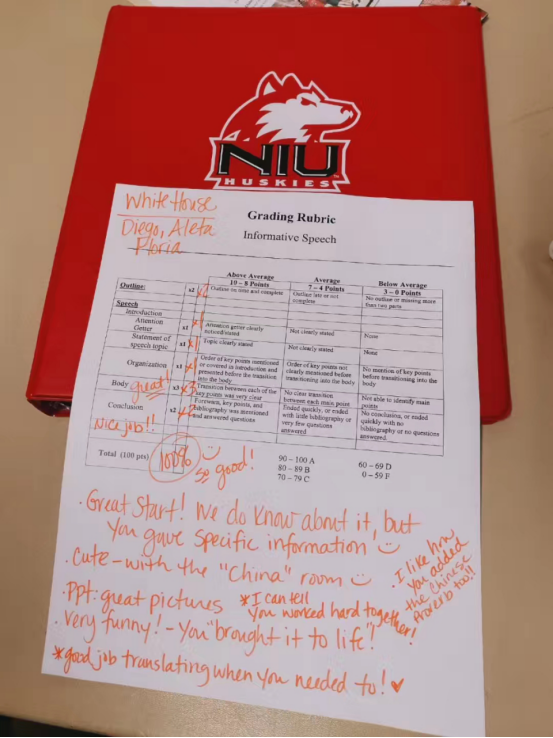 NIU
HUSKIES
White House
Diego, Aleta
Ploria
Grading Rubric
Informative Speech
Above Average
10 – 8 Points
Average
7 – 4 Points
Below Average
3 – 0 Points
Outline:
x2
x2
Outline on time and complete
Outline late or not
complete
No outline or missing more
than two parts
Speech
Introduction
Attention
Getter
x1
x1
Attention getter clearly
noticed/stated
Not clearly stated
None
Statement of
speech topic
x1
x1
Topic clearly stated
Not clearly stated
None
Organization
x1
x1
Order of key points mentioned
or covered in introduction and
presented before the transition
into the body
Order of key points not
clearly mentioned before
transitioning into the body
No mention of key points
before transitioning into the
body
Body great
x3
x3
Transition between each of the
key points was very clear
No clear transition
between each main point
Not able to identify main
points
Conclusion
x2
x2
key points, and
bibliography was mentioned
and answered questions
Ended quickly, or ended
with little bibliography or
very few questions
answered
No conclusion, or ended
quickly with no
bibliography or no questions
answered.
Nice job!!
Total (100 pts)
100%
so good!
90 – 100 A
80 – 89 B
70 – 79 C
60 – 69 D
0 – 59 F
· Great Start! We do know about it, but
you gave specific information
· Cute – with the "China" room
· Ppt: great pictures
* I can tell
you worked hard together!
· I like how
you added
the Chinese
Proverb too!!
· Very funny! – You "brought it to life"!
* good job translating when you needed to!